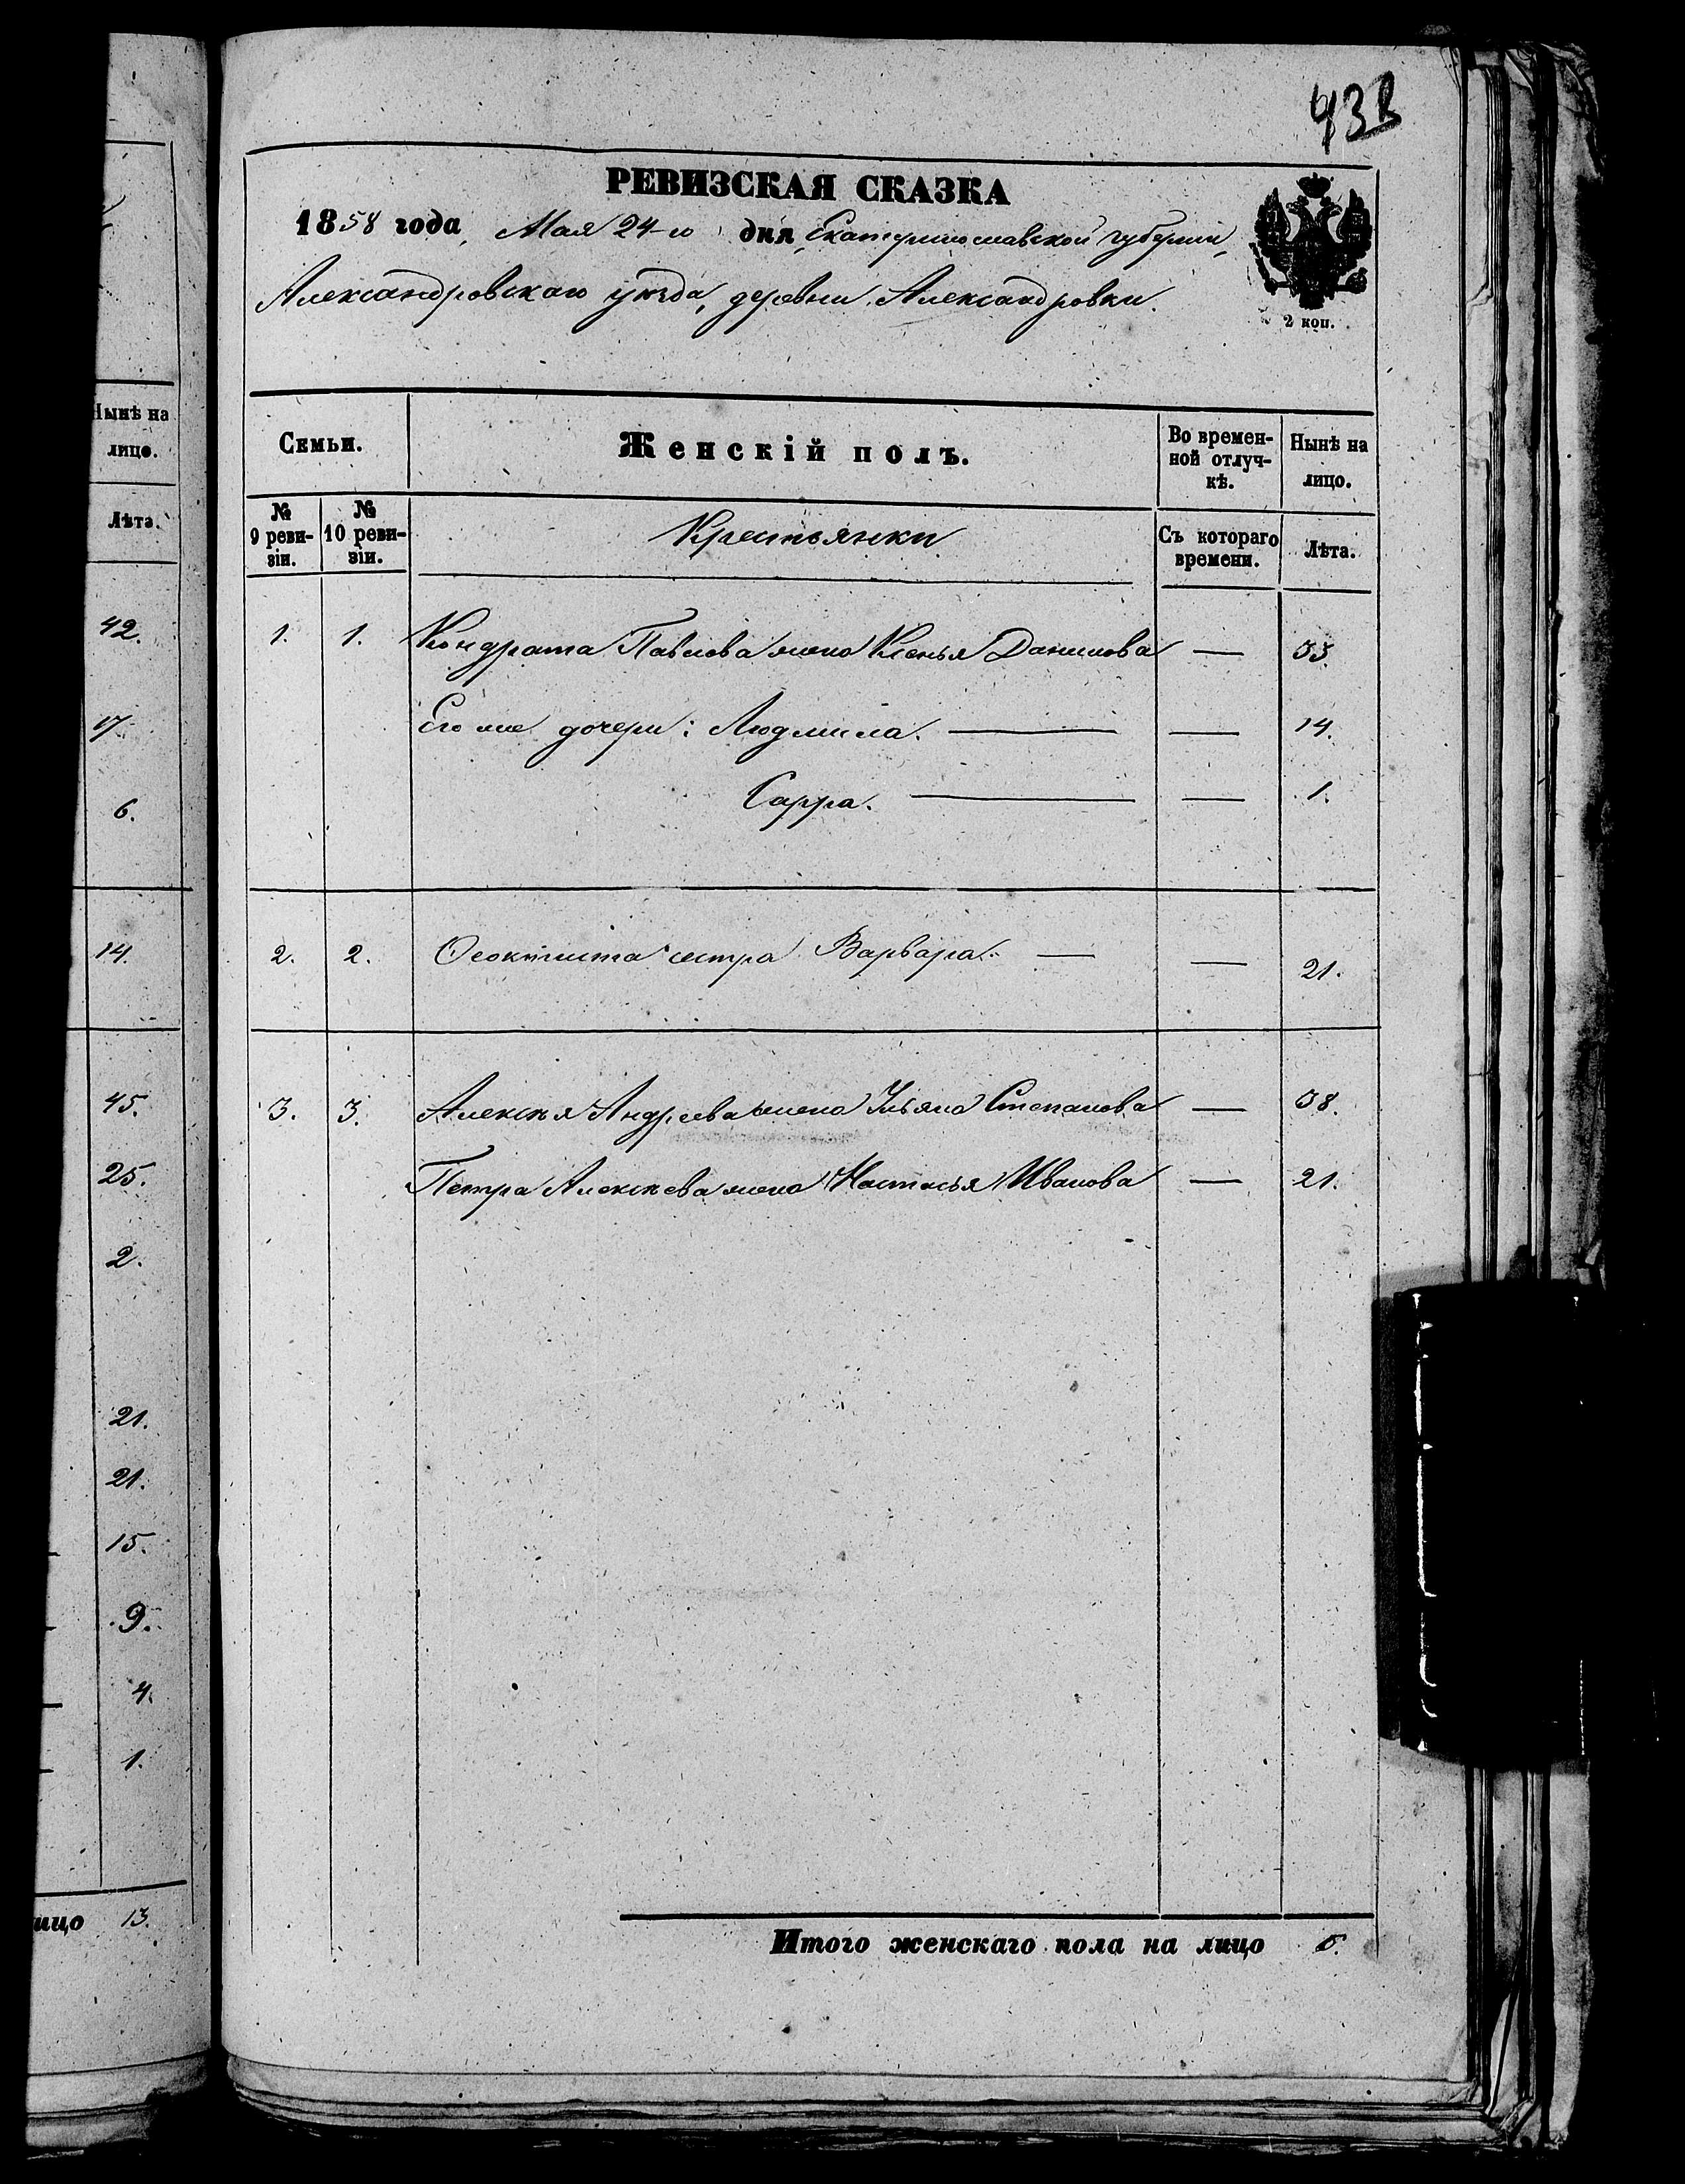 432
РЕВИЗСКАЯ СКАЗКА
1858 года, Мая 24-го дня, Екатеринославской губерніи,
Александровскаго уѣзда, деревни Александровки.
2 коп.
Нынѣ на лицо.
Лѣта.
42.
17.
6.
14.
45.
25.
2.
21.
21.
15.
9.
4.
1.
лицо 13.
Семьи. Женскій полъ. Во времен-ной отлуч-кѣ. Нынѣ на лицо.
№ 9 реви-зіи. № 10 реви-зіи. Крестьянки Съ котораго времени. Лѣта.
1. 1. Кондрата Павлова жена Ксенья Данилова —
Его же дочери: Людмила. — — 14.
Сарра. — — 1.
2. 2. Феоктиста сестра Варвара. — — 21.
3. 3. Алексѣя Андреева жена Ульяна Степанова — 38.
Петра Алексѣева жена Настасья Иванова — 21.
Итого женскаго пола на лицо 6.